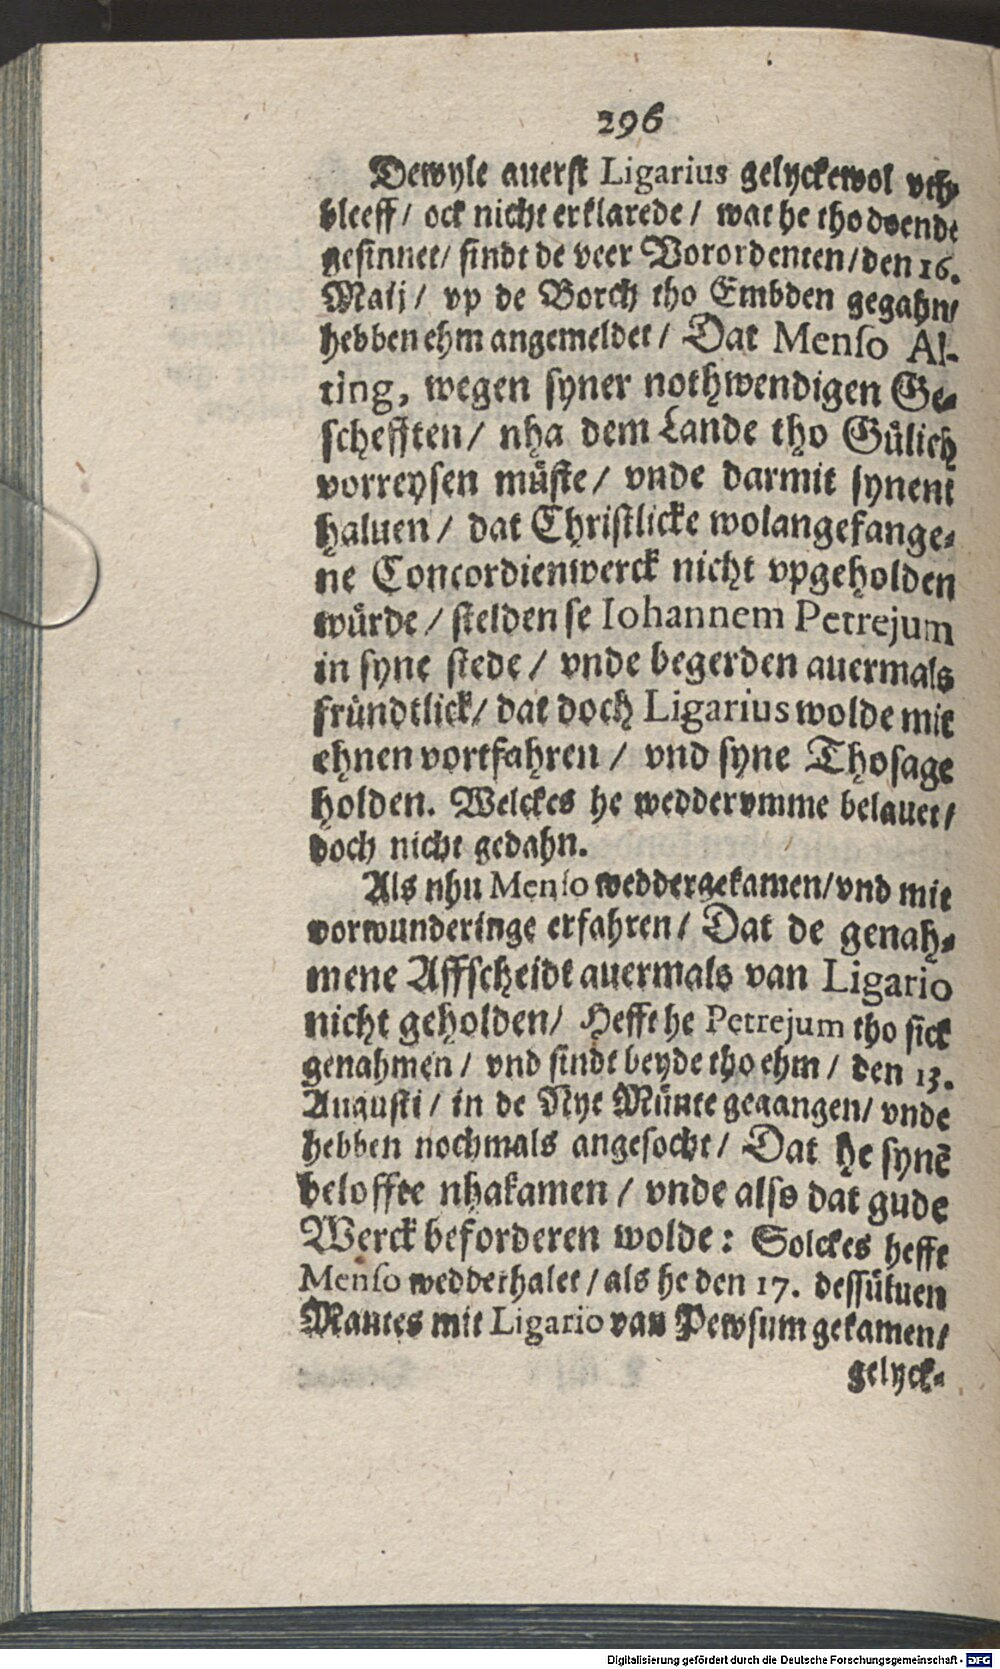 296
Dewyle auerst Ligarius gelyckewol vth
bleeff / ock nicht erklarede / wat he tho doende
gesinnet / sindt de veer Vorordenten / den 16.
Maij / vp de Borch tho Embden gegahn /
hebben ehm angemeldet / Dat Menso Al-
ting, wegen syner nothwendigen Ge-
schefften / nha dem Lande tho Gülich
vorreysen müste / vnde darmit synent
haluen / dat Christlicke wolangefange-
ne Concordienwerck nicht vpgeholden
würde / stelden se Iohannem Petrejum
in syne stede / vnde begerden auermals
fründtlick / dat doch Ligarius wolde mit
ehnen vortfahren / vnd syne Thosage
holden. Welckes he wedderumme belauet /
doch nicht gedahn.
Als nhu Menso weddergekamen / vnd mit
vorwunderinge erfahren / Dat de genah-
mene Affscheidt auermals van Ligario
nicht geholden / Hefft he Petrejum tho sick
genahmen / vnd sindt beyde tho ehm / den 13.
Augusti / in de Nye Münte gegangen / vnde
hebben nochmals angesocht / Dat he synē
beloffte nhakamen / vnde also dat gude
Werck beforderen wolde : Solckes hefft
Menso wedderhalet / als he den 17. dessüluen
Mantes mit Ligario van Pewsum gekamen /
gelyck-
Digitalisierung gefördert durch die Deutsche Forschungsgemeinschaft - DFG